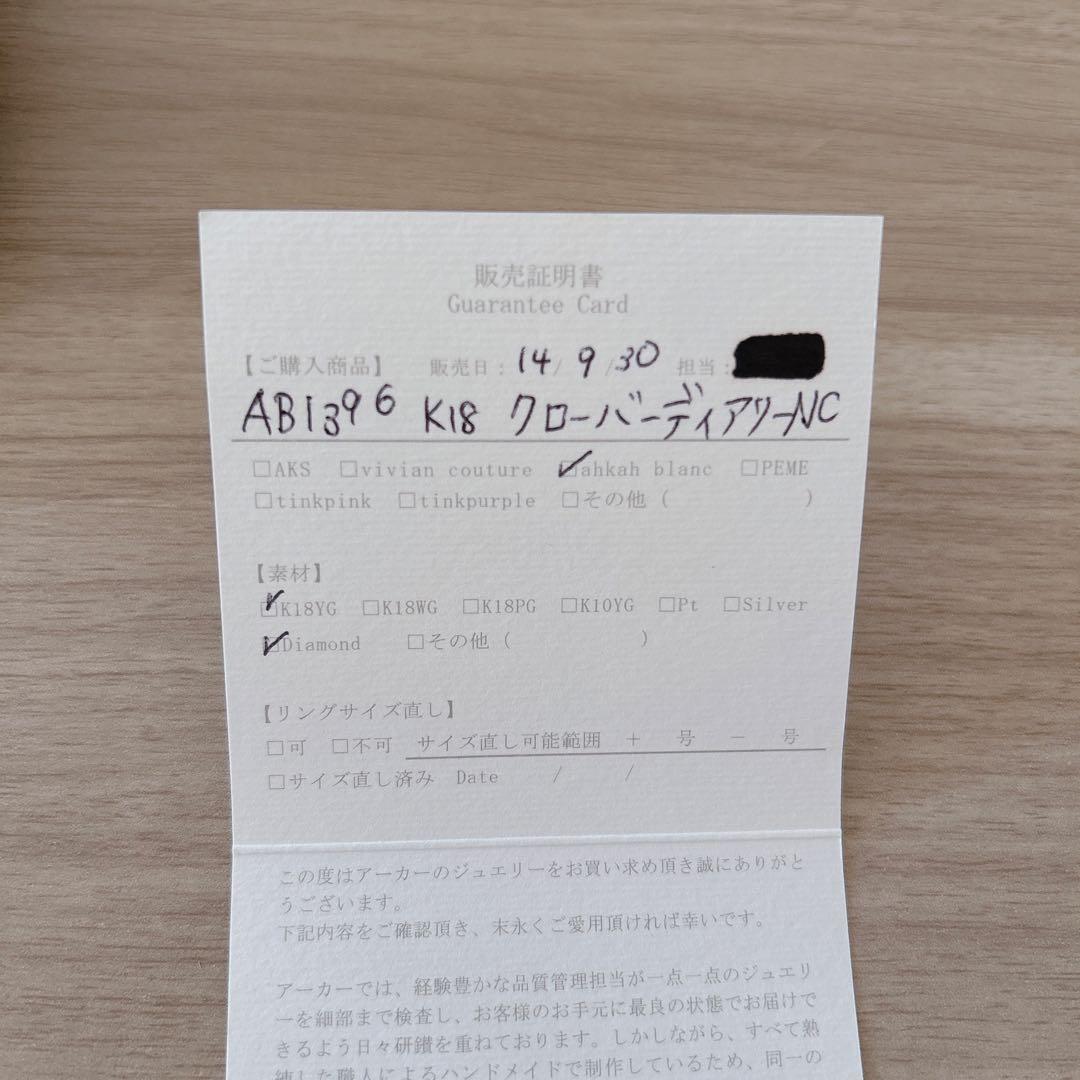 販売証明書
Guarantee Card
【ご購入商品】 販売日: 14/9/30 担当:
AB1396 K18 クローバーディアリーNC
□AKS □vivian couture ☑ahkah blanc □PEME
□tinkpink □tinkpurple □その他( )
【素材】
☑K18YG □K18WG □K18PG □K10YG □Pt □Silver
☑Diamond □その他( )
【リングサイズ直し】
□可 □不可 サイズ直し可能範囲 + 号 − 号
□サイズ直し済み Date / /
この度はアーカーのジュエリーをお買い求め頂き誠にありがと
うございます。
下記内容をご確認頂き、末永くご愛用頂ければ幸いです。
アーカーでは、経験豊かな品質管理担当が一点一点のジュエリ
ーを細部まで検査し、お客様のお手元に最良の状態でお届けで
きるよう日々研鑚を重ねております。しかしながら、すべて熟
練した職人によるハンドメイドで制作しているため、同一の